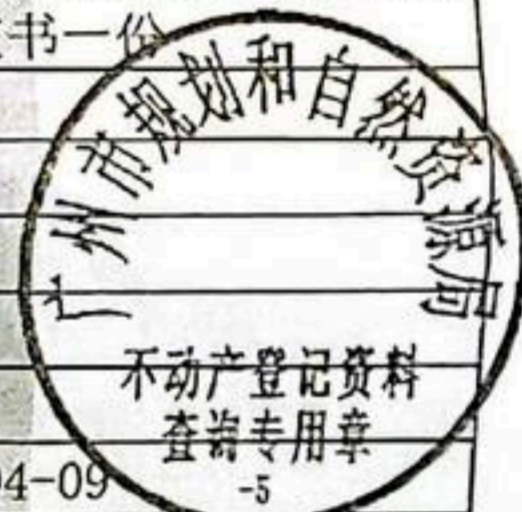 书一份
广州市规划和自然资源局
不动产登记资料
查询专用章
4-09
-5